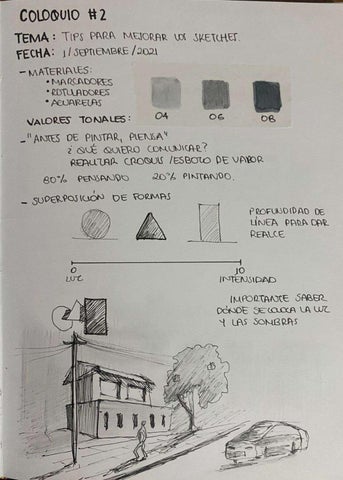 COLOQUIO #2
TEMA: TIPS PARA MEJORAR LOS SKETCHES.
FECHA: 1/SEPTIEMBRE/2021
- MATERIALES:
• MARCADORES
• ROTULADORES
• ACUARELAS
VALORES TONALES: 04 06 08
- "ANTES DE PINTAR, PIENSA"
¿QUÉ QUIERO COMUNICAR?
REALIZAR CROQUIS/ESBOZO DE VALOR
80% PENSANDO 20% PINTANDO.
- SUPERPOSICIÓN DE FORMAS
PROFUNDIDAD DE
LÍNEA PARA DAR
REALCE
0 10
LUZ INTENSIDAD
IMPORTANTE SABER
DÓNDE SE COLOCA LA LUZ
Y LAS SOMBRAS